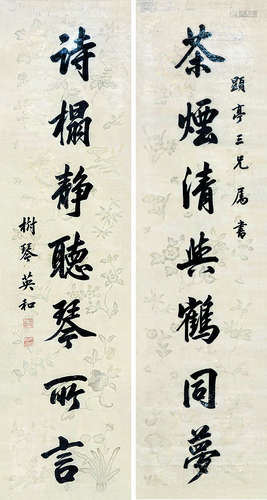 茶煙清與鶴同夢
顕亭三兄属書
詩榻靜聽琴所言
樹琴英和